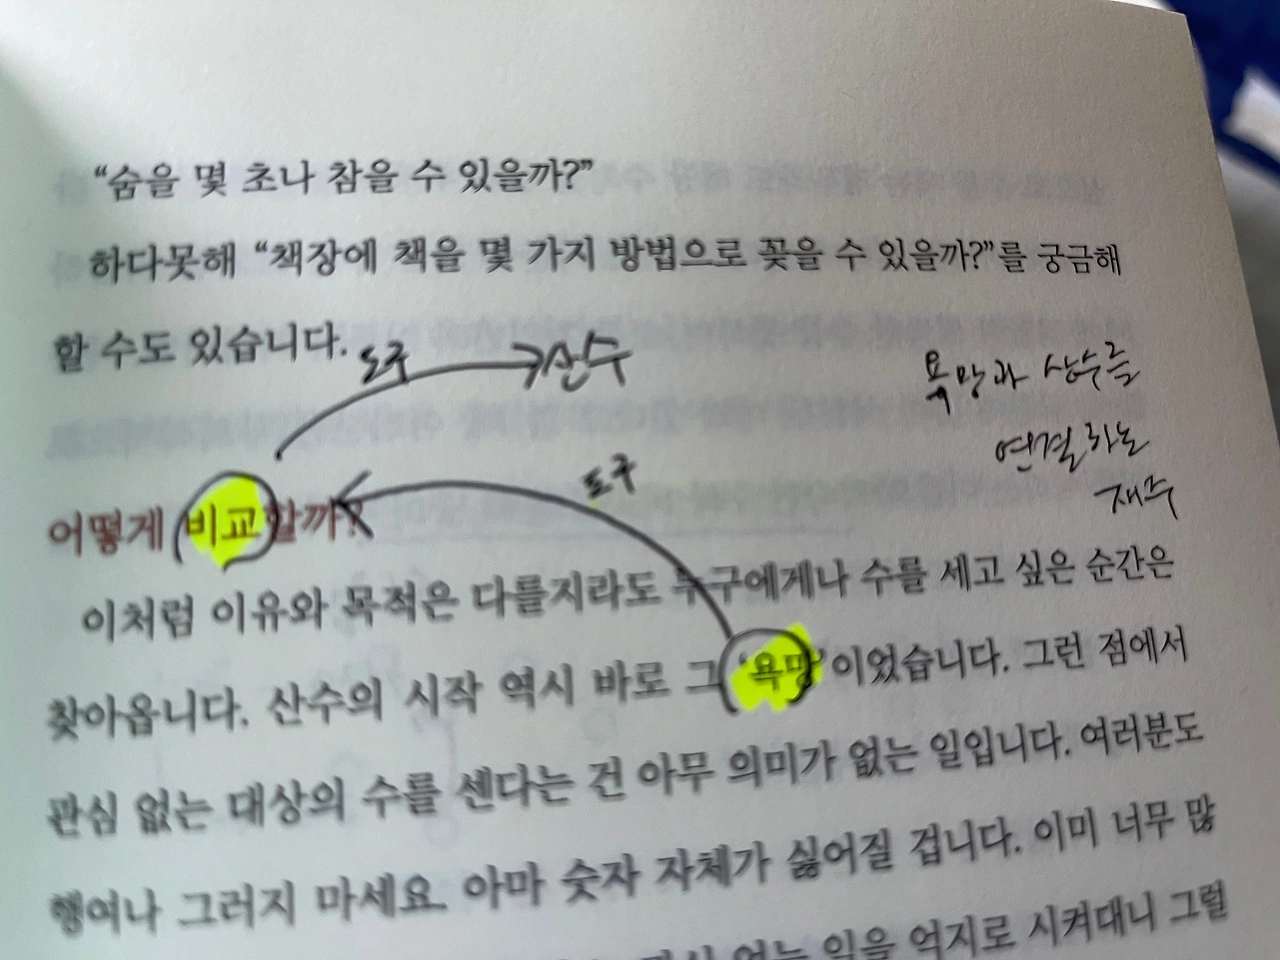 “숨을 몇 초나 참을 수 있을까?”
하다못해 “책장에 책을 몇 가지 방법으로 꽂을 수 있을까?”를 궁금해
할 수도 있습니다.
도구
산수
욕망과 산수를
연결하는
재주
도구
어떻게 비교할까?
이처럼 이유와 목적은 다를지라도 누구에게나 수를 세고 싶은 순간은
찾아옵니다. 산수의 시작 역시 바로 그 ‘욕망’이었습니다. 그런 점에서
관심 없는 대상의 수를 센다는 건 아무 의미가 없는 일입니다. 여러분도
행여나 그러지 마세요. 아마 숫자 자체가 싫어질 겁니다. 이미 너무 많
없는 일을 억지로 시켜대니 그럴